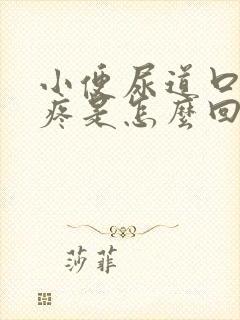 小便尿道口
疼是怎麼回
莎菲